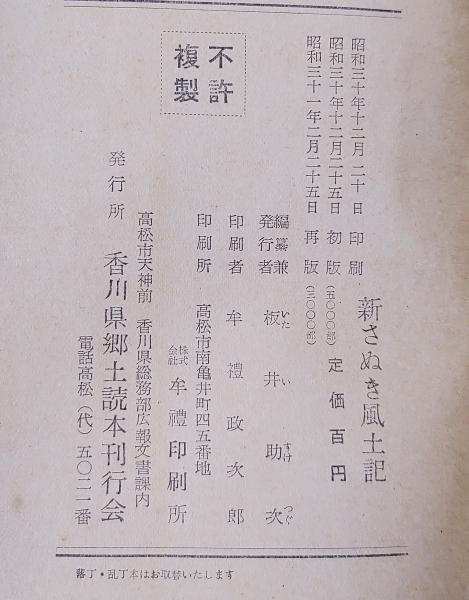 新さぬき風土記
昭和三十年十二月二十日 印刷
昭和三十年十二月二十五日 初版(五〇〇〇部) 定価百円
昭和三十一年二月二十五日 再版(三〇〇〇部)
不許
複製
編纂兼
発行者 板井助次
いた い すけ つぐ
印刷者 牟禮政次郎
高松市南亀井町四五番地
印刷所 株式会社 牟禮印刷所
高松市天神前 香川県総務部広報文書課内
発行所 香川県郷土読本刊行会
電話高松(代)五〇二一番
落丁・乱丁本はお取替いたします